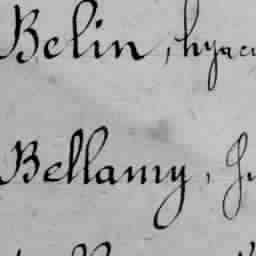 Belin, hyac
Bellamy, J